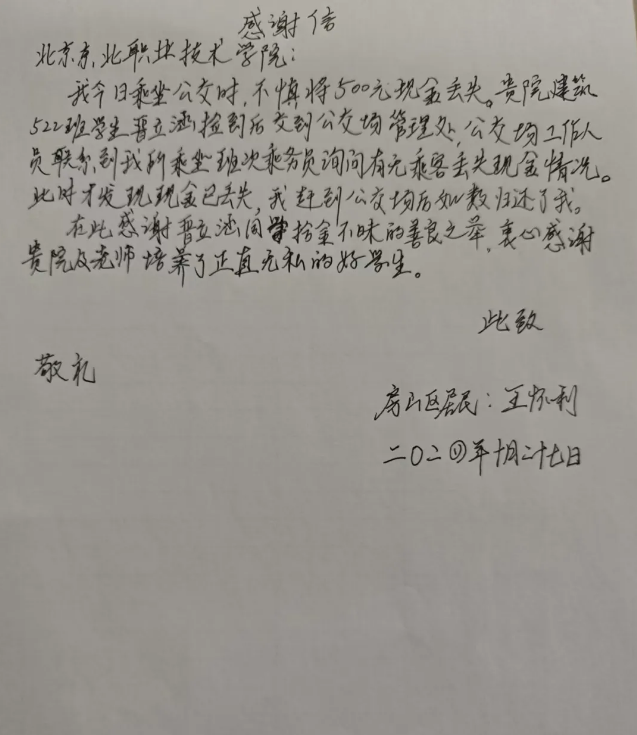 感谢信
北京京北职业技术学院：
我今日乘坐公交时，不慎将500元现金丢失。贵院建筑
522班学生晋立涵捡到后交到公交场管理处，公交场工作人
员联系到我所乘坐班次乘务员询问有无乘客丢失现金情况。
此时才发现现金已丢失，我赶到公交场后如数归还了我。
在此感谢晋立涵同学拾金不昧的善良之举，衷心感谢
贵院及老师培养了正直无私的好学生。
此致
敬礼
房山区居民：王怀利
二〇二四年十月二十七日